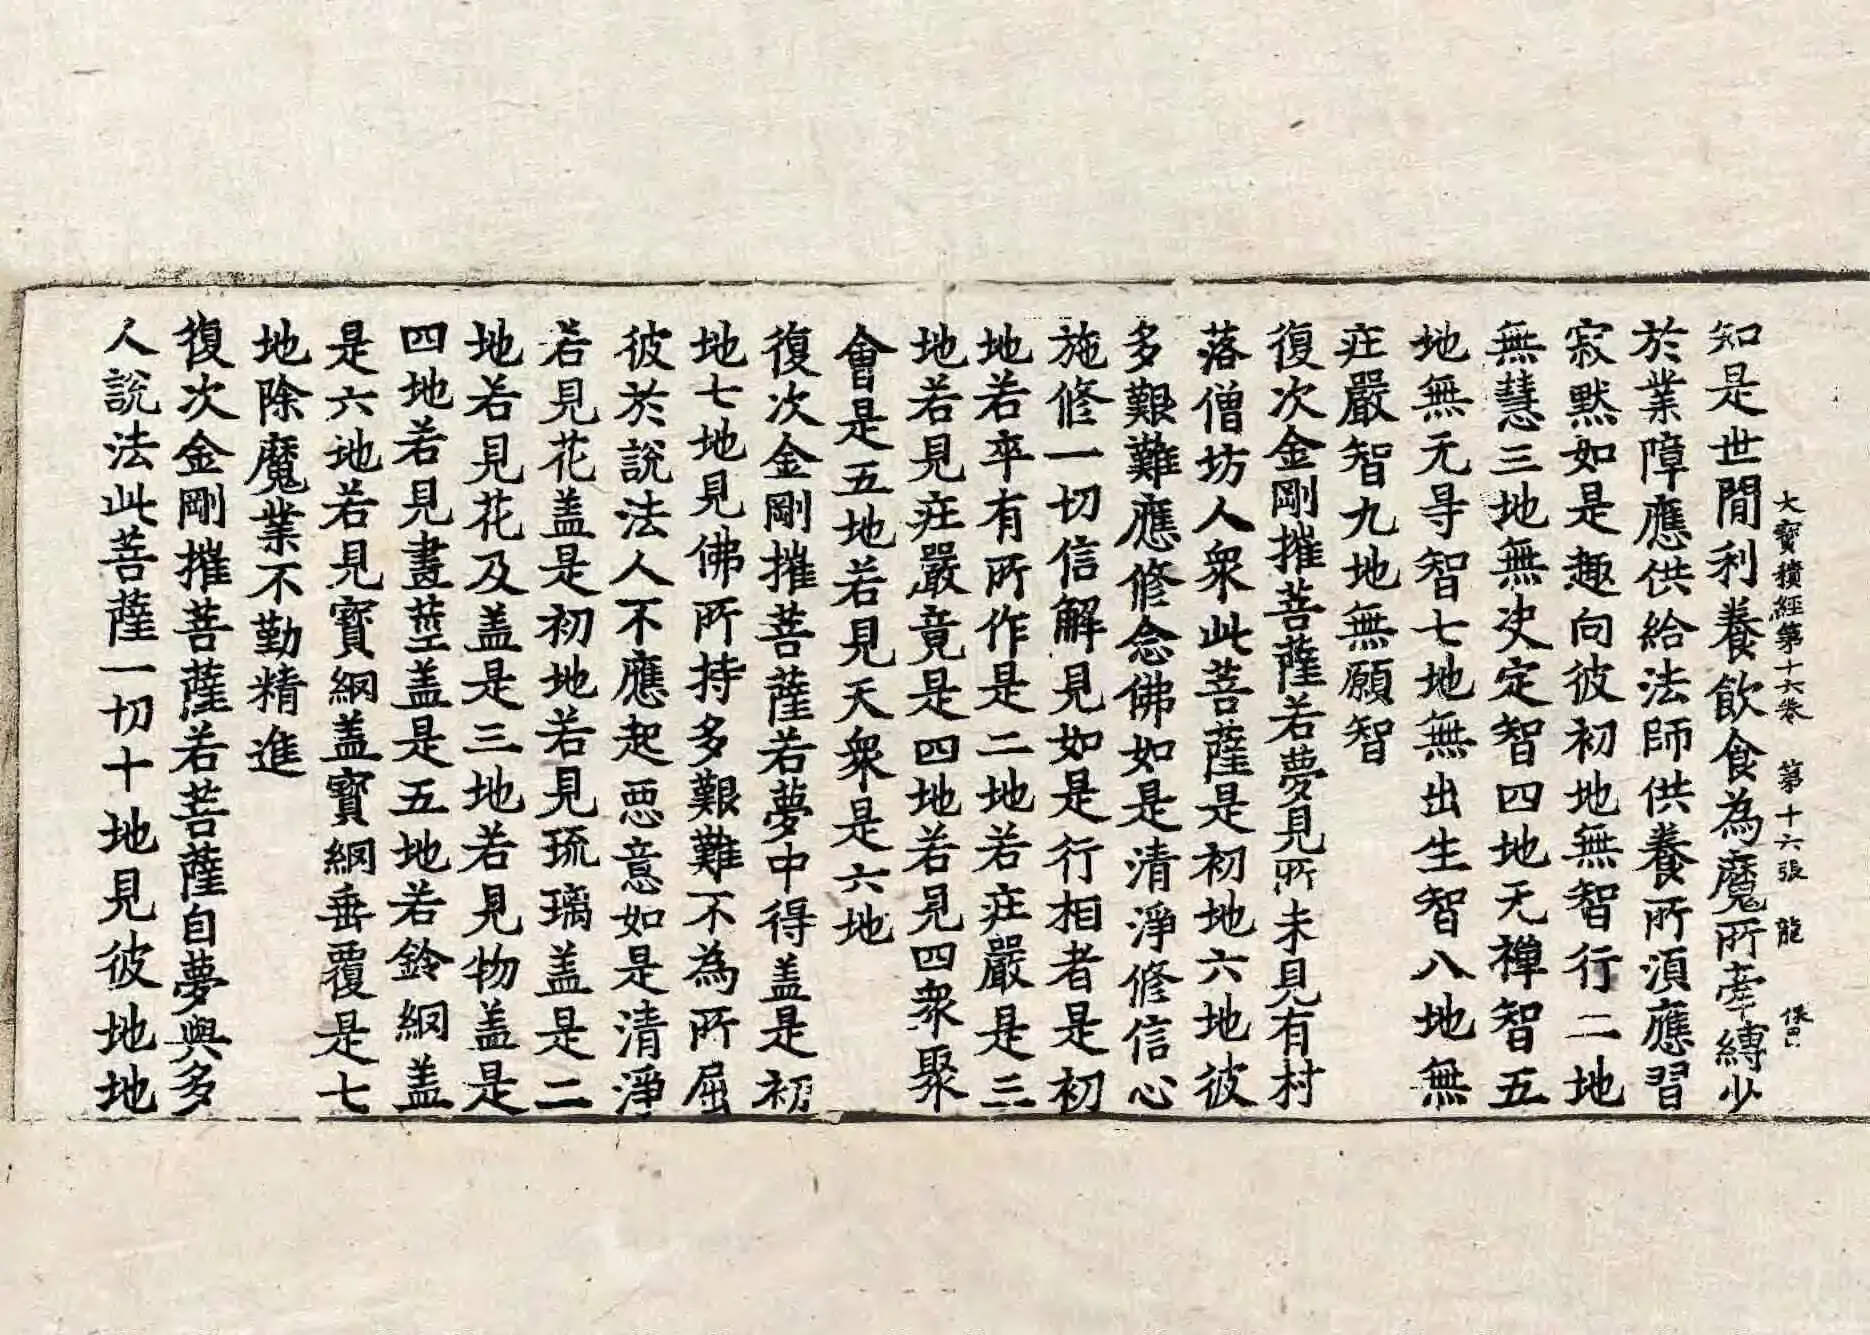 大寳積經第十六卷 第十六張 龍
知是世間利養飲食為魔所牽縛少
於業障應供給法師供養所湏應習
寂默如是趣向彼初地無智行二地
無慧三地無决定智四地无禅智五
地無无㝵智七地無出生智八地無
疘嚴智九地無願智
復次金剛摧菩薩若夢見所未見有村
落僧坊人衆此菩薩是初地六地彼
多艱難應修念佛如是清淨修信心
施修一切信解見如是行相者是初
地若卒有所作是二地若疘嚴是三
地若見疘嚴竟是四地若見四衆聚
會是五地若見天衆是六地
復次金剛摧菩薩若夢中得盖是初
地七地見佛所持多艱難不為所屈
彼於說法人不應起恶意如是清淨
若見花盖是初地若見琉璃盖是二
地若見花及盖是三地若見物盖是
四地若見晝盖是五地若鈴網盖
是六地若見寳網盖寳網垂覆是七
地除魔業不勤精進
復次金剛摧菩薩若菩薩自夢與多
人說法此菩薩一切十地見彼地地